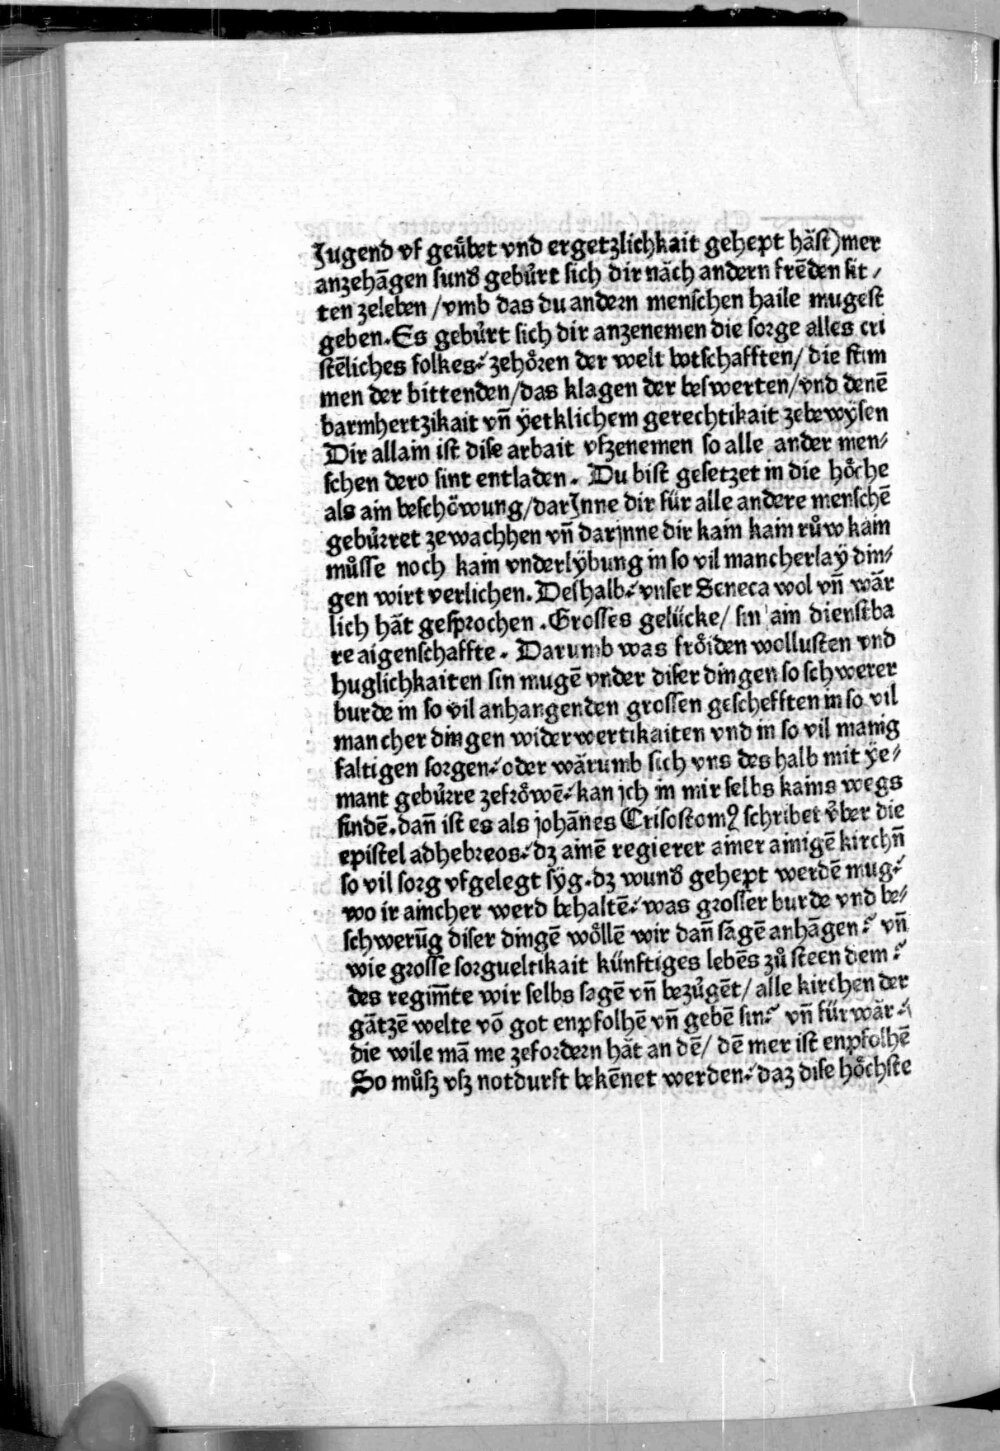 Jugend vf geu̇bet vnd ergetzlichkait gehept hāst) mer
anzehāgen sunđ gebu̇rt sich dir nāch andern frēden sit /
ten zeleben / vmb das du andern menschen haile mugest
geben. Es gebu̇rt sich dir anzenemen die sorge alles cri
stēliches folkes: zehöꝛen der welt botschafften / die stim
men der bittenden / das klagen der beswerten / vnd denē
barmhertzikait vn̄ ÿetklichem gerechtikait zebewÿsen
Dir allain ist dise arbait vfzenemen so alle ander men/
schen dero sint entladen. Du bist gesetzet in die höche
als ain beschöwung / darJnne dir für alle andere menschē
gebu̇ꝛret zewachhen vn̄ darjnne dir kain kain ru̇w kain
mu̇sse noch kain vnderlÿbung in so vil mancherlaÿ din/
gen wirt verlichen. Deshalb: vnser Seneca wol vn̄ wār
lich hāt gespꝛochen. Grosses gelücke / sin ain dienstba
re aigenschaffte. Darumb was fröiden wollusten vnd
huglichkaiten sin mugē vnder diser dingen so schwerer
burde in so vil anhangenden grossen geschefften in so vil
mancher dingen widerwertikaiten vnd in so vil manig
faltigen sorgen: oder wārumb sich vns des halb mit ÿe/
mant gebu̇ꝛre zefꝛöwē: kan jch in mir selbs kains wegs
findē. dan̄ ist es als johānes Crisostomꝰ schribet v̇ber die
epistel adhebꝛeos: dz ainē regierer ainer ainigē kirchn̄
so vil sorg vfgelegt sÿg. dz wunđ gehept werdē mug:
wo ir aincher werd behaltē: was grosser burde vnd be/
schwerūg diser dingē wöllē wir dan̄ sāgē anhāgen: vn̄
wie grosse sorgueltikait künftiges lebēs zu̇ steen dem:
des regim̄te wir selbs sagē vn̄ bezu̇gēt / alle kirchen der
gātzē welte vō got enpfolhē vn̄ gebē sin: vn̄ für wār:
die wile mā me zefoꝛdeꝛn hāt an dē / dē mer ist enpfolhē
So mu̇sz vsz notdurft bekēnet werden: daz dise höchste